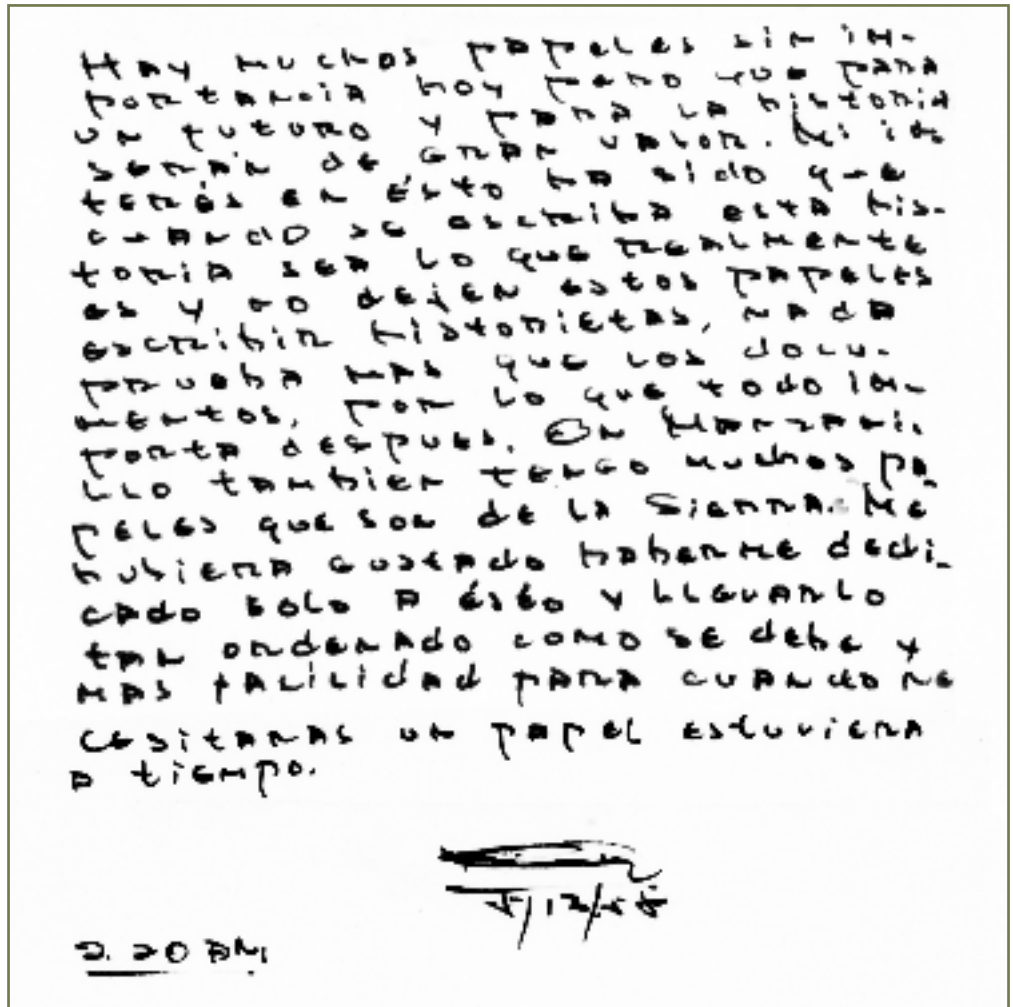 Hay muchos papeles sin im-
portancia hoy pero que para
un futuro y para la historia
serán de gran valor. Mi in
terés en ésto ha sido que
cuando se escriba esta his-
toria sea lo que realmente
es y no dejen estos papeles
escribir historietas, nada
prueba mas que los docu-
mentos, por lo que todo im-
porta despues. En Manzani-
llo tambien tengo muchos pa-
peles que son de la Sierra. Me
hubiera gustado haberme dedi-
cado solo a ésto y llevarlo
tan ordenado como se debe y
mas facilidad para cuando ne
cesitaras un papel estuviera
a tiempo.
2.20 AM